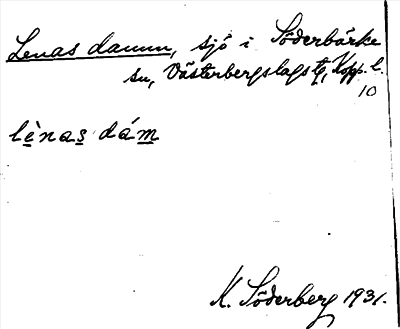 Lenas damm, sjö i Söderbärke
sn, Västerbergslags tg, Kopp. l.
10
lènas dám
K. Söderberg 1931.